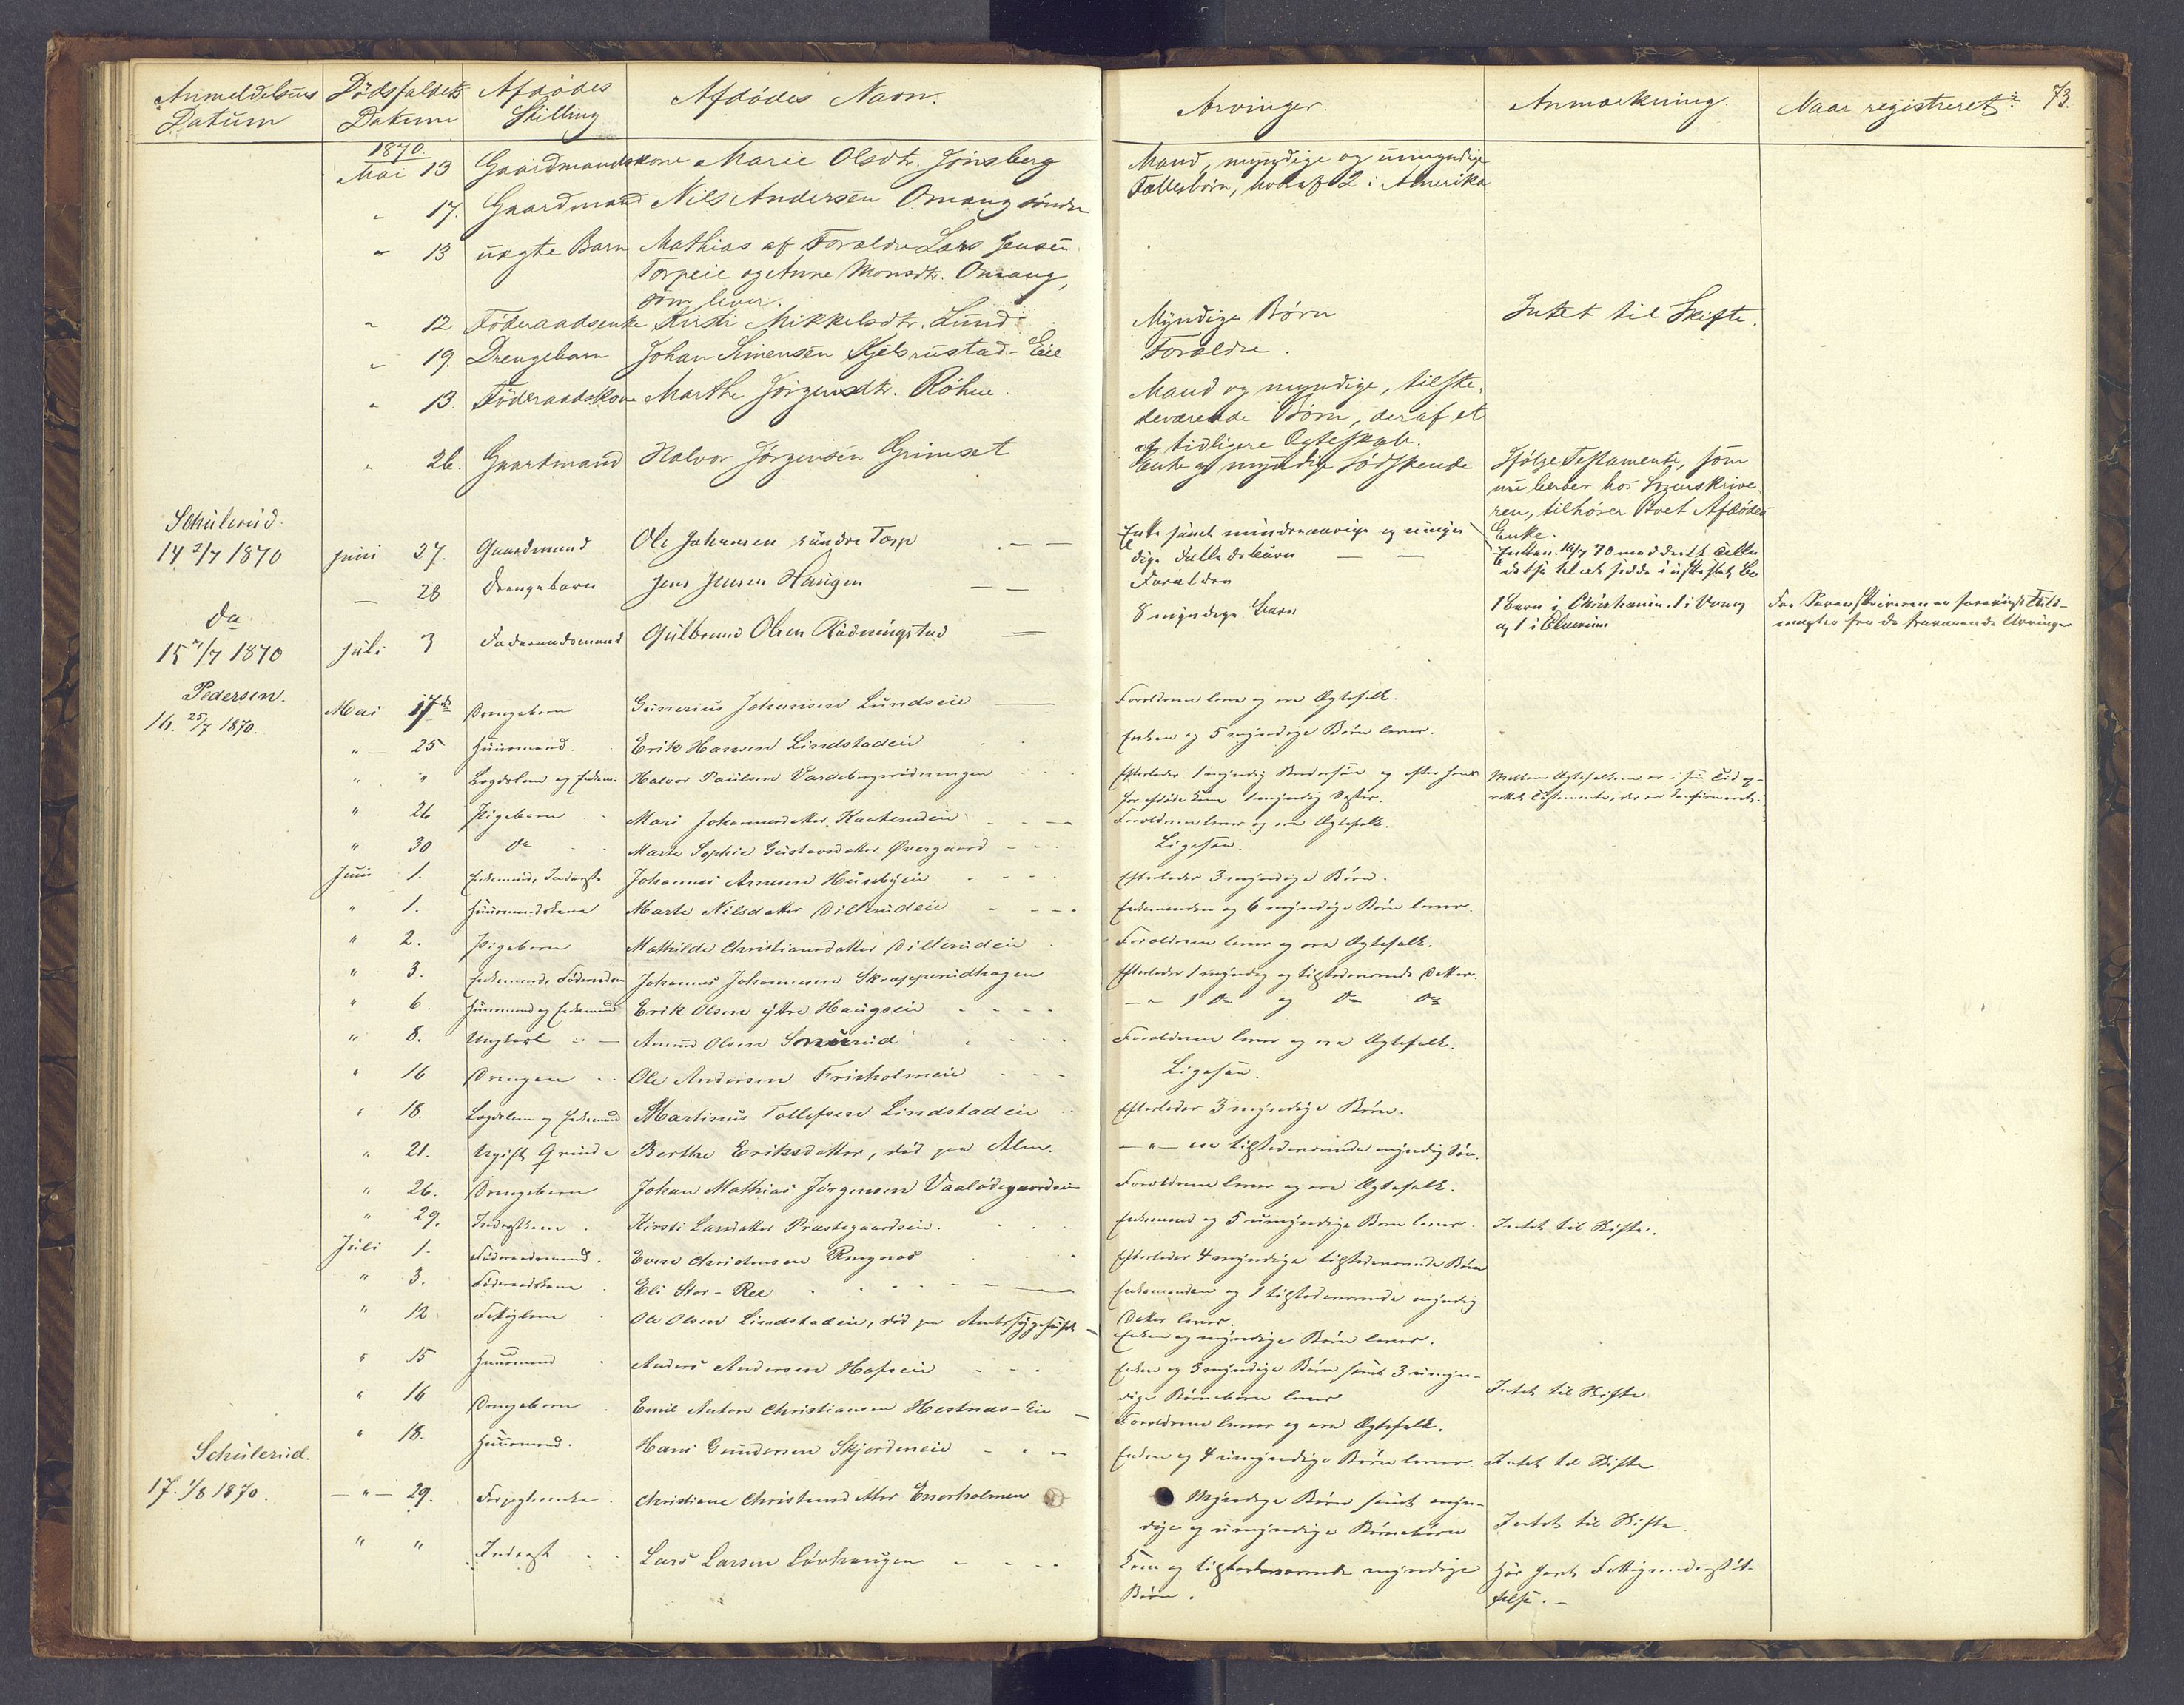 Anmeldelsens Datum Dödsfaldets Datum Afdödes Stilling Afdödes Navn. Arvinger. Anmærkning. Naar registreret: 73.
1870.
Mai 13 Gaardmandskone Marie Olsdtr. Jönsberg Mand, myndige og umyndige
Fællesbörn, hvoraf 2 i Amerika
" 17. Gaardmand Nils Andersen Omang söndre
" 13 uægte Barn Mathias af Foraldre Lars Jensen
Torpeie og Anne Monsdtr. Omang,
som lever.
" 12 Föderaadsenke Kirsti Mikkelsdtr. Lund Myndige Börn Intet til Skifte.
" 19. Drengebarn Johan Simensen Kjelsrustad-Eie Foraldre.
" 13. Föderaadskone Marthe Jörgensdtr. Röhne. Mand og myndige, tilste-
deværende Börn, deraf et
af tidligere Ægteskab.
" 26. Gaardmand Halvor Jörgensen Grimset Enke og myndige Södskende Ifölge Testamente, som
nu beroer hos Sorenskrive-
ren, tilhörer Boet Afdödes
Enke.
Schülerud.
14 2/7 1870 Juni 27. Gaardmand Ole Johannesen söndre Torp Enke samt mindreaarige og umyn-
dige Fællesbörn
Enken 16/7 70 meddeelt Tilla-
delse til at sidde i uskiftet Bo
28 Drengebarn Jens Jensen Haugen Foraldre
do
15 4/7 1870 Juli 3 Föderaadsmand Gulbrand Olsen Rödningstad 8 myndige Børn 1 Barn i Christiania, 1 i Vang
og 1 i Elverum
For Sorenskriveren er forevist Fuld-
magter fra de fraværende Arvinger
Pedersen.
16. 25/7 1870. Mai 17de Drengebarn Gunerius Johansen Lundseie Foraldrene leve og ere Ægtefolk.
" 25 Huusmand. Erik Hansen Lindstadeie Enken og 5 myndige Börn lever.
" " Lægdslem og Enkem: Halvor Paulsen Vardebergrödningen Efterlader 1 myndig Södersön og efter hans
for afdöde Kone 1 myndig Datter. Mellem Ægtefolkene er i sin Tid op-
rettet Testamente, der er konfirmeret.
" 26 Pigebarn Mari Johannesdatter Kaaterudeie Foraldrene lever og ere Ægtefolk.
" 30 do Marte Sophie Gustavsdatter Övergaard Ligesaa.
Juni 1. Enkemand, Inderst Johannes Arnesen Husebyeie Efterlader 3 myndige Börn.
" 1. Huusmandskone Marte Nilsdatter Dillerudeie Enkemanden og 6 myndige Börn lever.
" 2. Pigebarn Mathilde Christiansdatter Dillerudeie Foraldrene lever og ere Ægtefolk.
" 3. Enkemand, Föderaadsm Johannes Johannesen Skrapperudhagen Efterlader 1 myndig og tilstedeværende Datter.
" 6. Huusmand og Enkemand Erik Olsen yttre Haugseie — " 1 do og do do
" 8. Ungkarl Amund Olsen Snuerud Foraldrene lever og ere Ægtefolk.
" 16 Drengen Ole Andersen Frisholmeie Ligesaa.
" 18. Lægdslem og Enkemand Martinus Tollefsen Lindstadeie Efterlader 3 myndige Börn.
" 21. Ugift Qvinde Berthe Eriksdatter, död paa Alm. — " — en tilstedeværende myndig Sön.
" 26. Drengebarn Johan Mathias Jörgensen Vaalödegaardseie Foraldrene lever og ere Ægtefolk.
" 29. Inderstkone Kirsti Larsdatter Præstegaardseie. Enkemand og 5 umyndige Börn lever. Intet til Skifte.
Juli 1. Föderaadsmand. Even Christensen Ringnes Efterlader 4 myndige tilstedeværende Börn
" 3. Föderaadskone Eli Stor-Ree Enkemanden og 1 tilstedeværende myndig
Datter lever.
" 12 Ole Olsen Lindstadeie, död paa Amtssygehuset Enken og myndige Börn lever.
" 15 Huusmand Anders Andersen Hofseie Enken og 3 myndige Börn samt 3 umyn-
dige Börnebörn lever Intet til Skifte
" 16 Drengebarn Emil Anton Christiansen Hestnæs-Eie Foraldrene lever og ere Ægtefolk.
" 18. Huusmand. Hans Gundersen Skjerdeneie Enken og 4 umyndige Börn lever. Intet til Skifte
Schülerud.
17. 1/8 1870. — " — 29. Christiane Christensdatter Enerholmen Myndige Börn samt myn-
dige og umyndige Börnebörn Intet til Skifte.
" " Inderst Lars Larsen Lövhaugen Kone og tilstedeværende myndige
Börn. Har havt Fattigunderstöt-
telse.